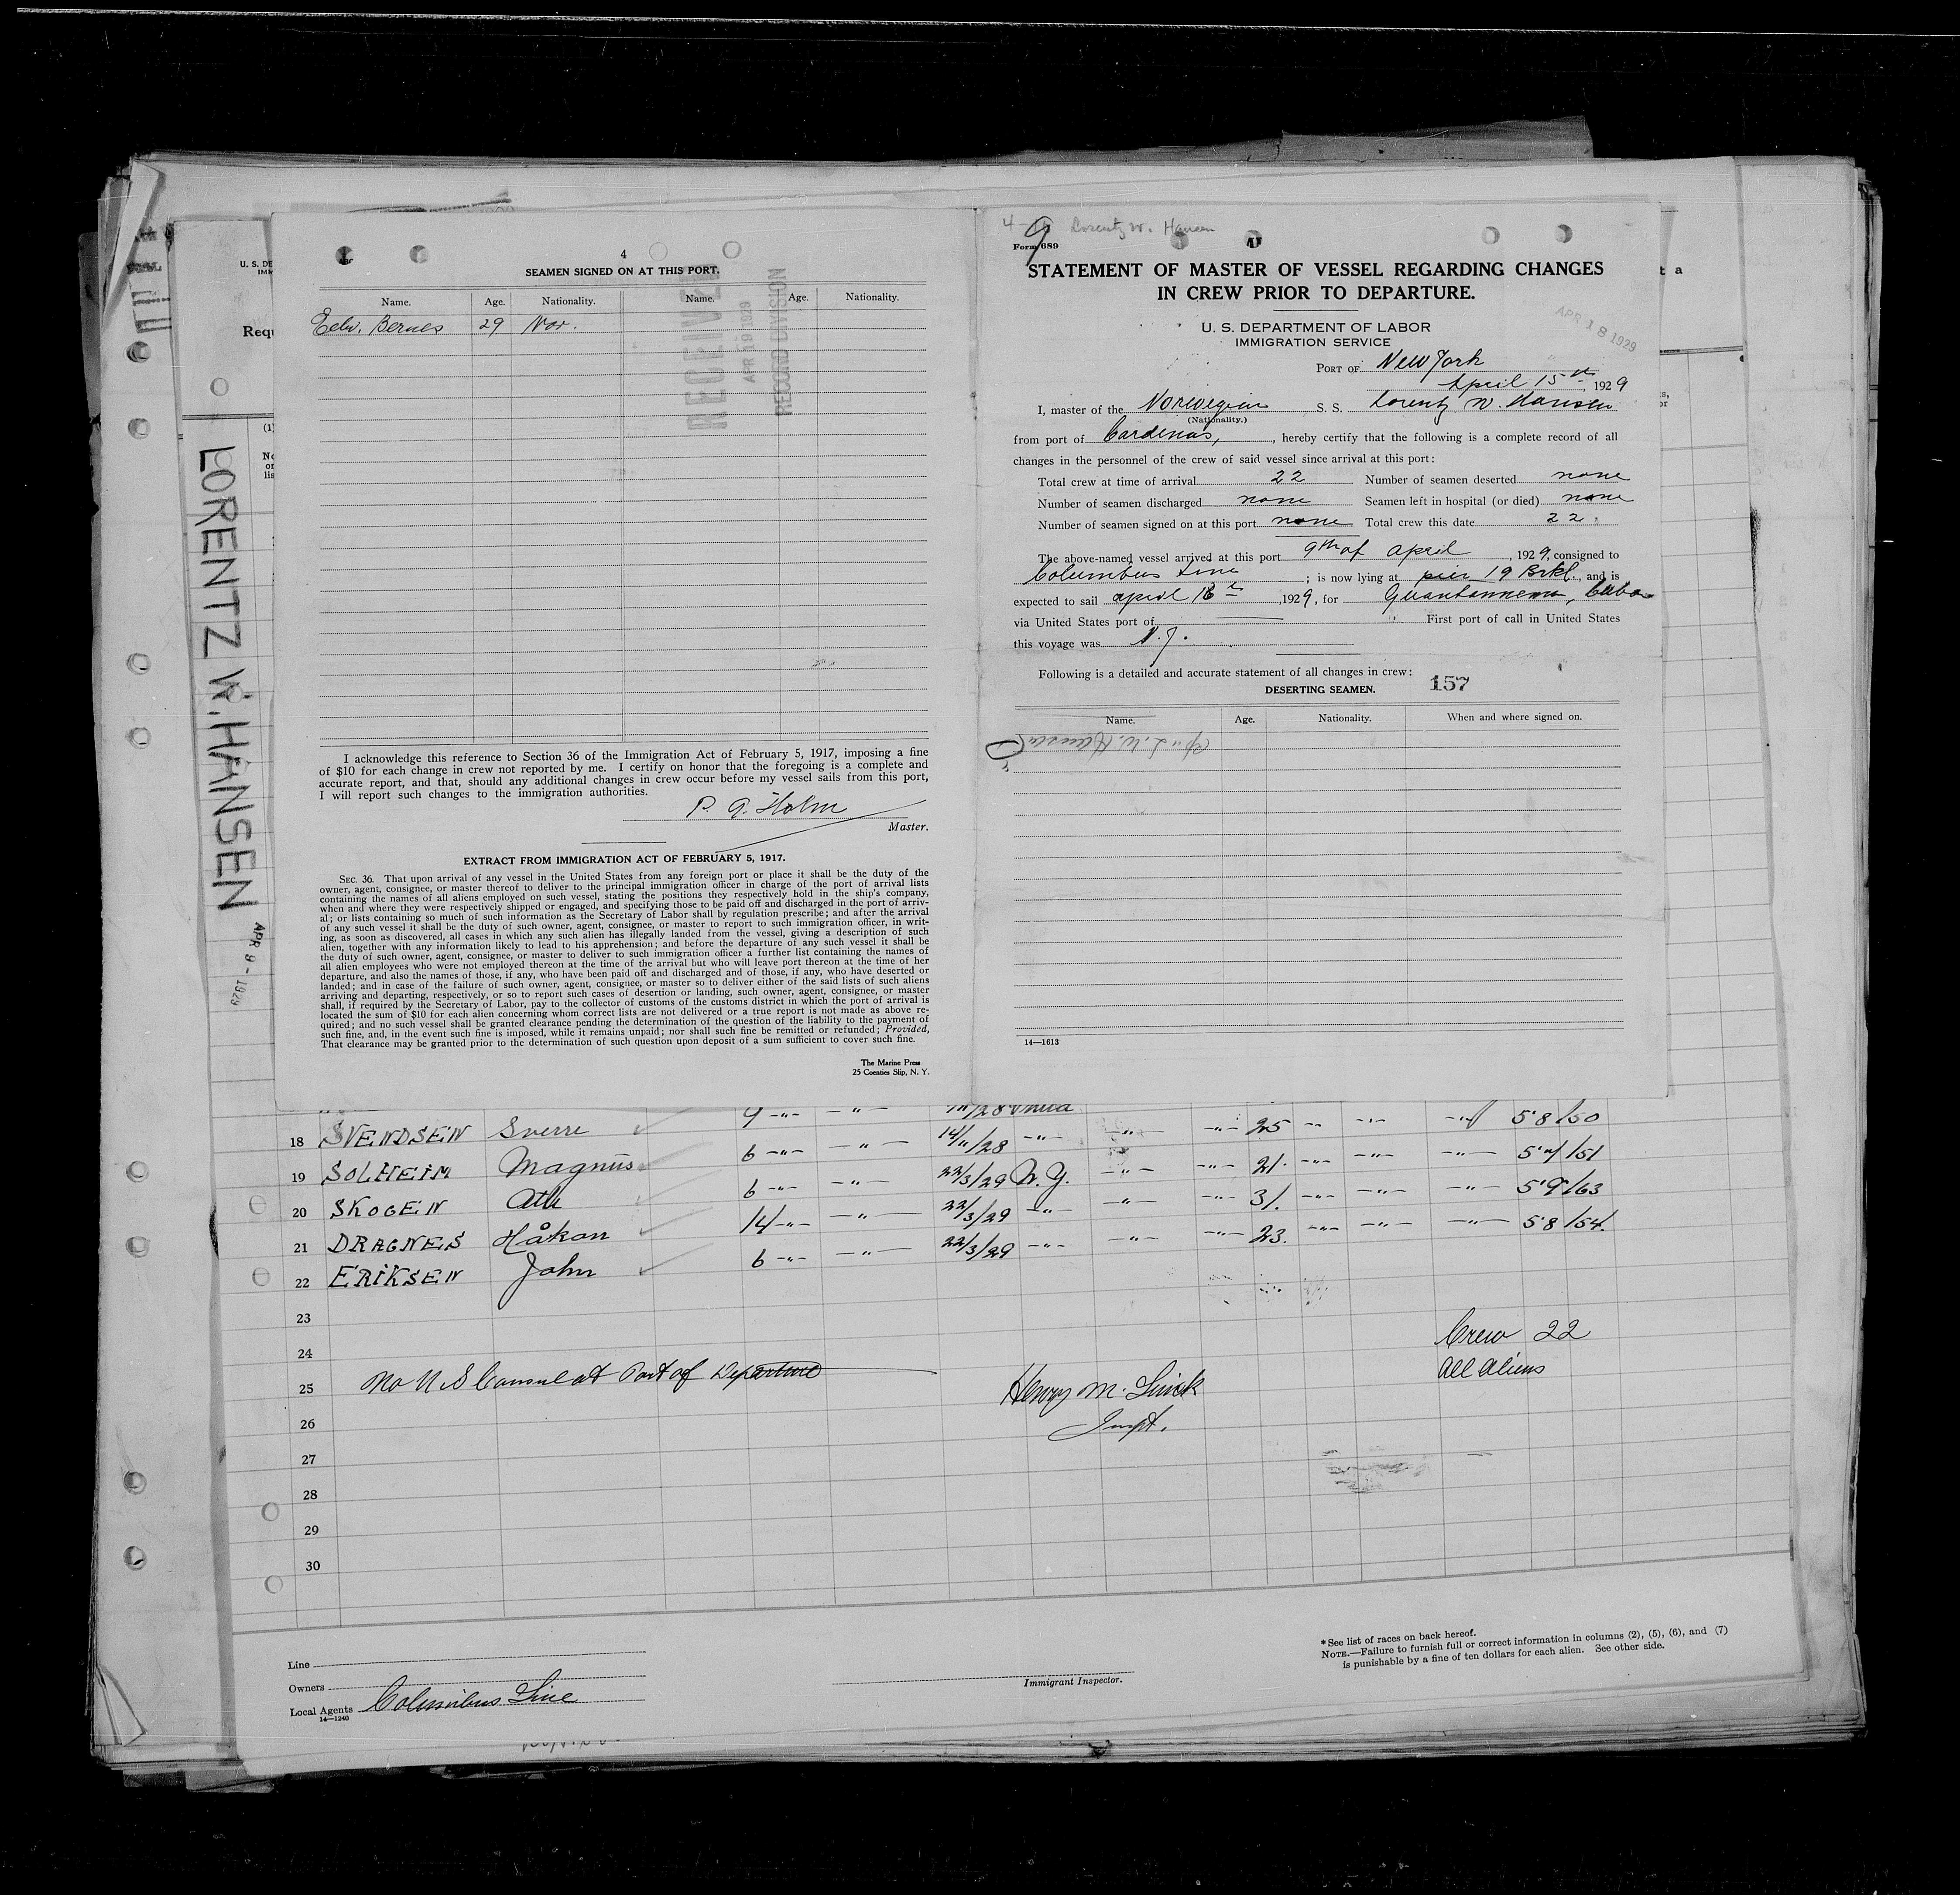 4
SEAMEN SIGNED ON AT THIS PORT.
Name. Age. Nationality. Name. Age. Nationality.
Edw. Bernes 29 Nor.
RECEIVED
APR 19 1929
RECORD DIVISION
I acknowledge this reference to Section 36 of the Immigration Act of February 5, 1917, imposing a fine
of $10 for each change in crew not reported by me. I certify on honor that the foregoing is a complete and
accurate report, and that, should any additional changes in crew occur before my vessel sails from this port,
I will report such changes to the immigration authorities.
P. G. Holm
Master.
EXTRACT FROM IMMIGRATION ACT OF FEBRUARY 5, 1917.
SEC. 36. That upon arrival of any vessel in the United States from any foreign port or place it shall be the duty of the
owner, agent, consignee, or master thereof to deliver to the principal immigration officer in charge of the port of arrival lists
containing the names of all aliens employed on such vessel, stating the positions they respectively hold in the ship's company,
when and where they were respectively shipped or engaged, and specifying those to be paid off and discharged in the port of arriv-
al; or lists containing so much of such information as the Secretary of Labor shall by regulation prescribe; and after the arrival
of any such vessel it shall be the duty of such owner, agent, consignee, or master to report to such immigration officer, in writ-
ing, as soon as discovered, all cases in which any such alien has illegally landed from the vessel, giving a description of such
alien, together with any information likely to lead to his apprehension; and before the departure of any such vessel it shall be
the duty of such owner, agent, consignee, or master to deliver to such immigration officer a further list containing the names of
all alien employees who were not employed thereon at the time of the arrival but who will leave port thereon at the time of her
departure, and also the names of those, if any, who have been paid off and discharged and of those, if any, who have deserted or
landed; and in case of the failure of such owner, agent, consignee, or master so to deliver either of the said lists of such aliens
arriving and departing, respectively, or so to report such cases of desertion or landing, such owner, agent, consignee, or master
shall, if required by the Secretary of Labor, pay to the collector of customs of the customs district in which the port of arrival is
located the sum of $10 for each alien concerning whom correct lists are not delivered or a true report is not made as above re-
quired; and no such vessel shall be granted clearance pending the determination of the question of the liability to the payment of
such fine, and, in the event such fine is imposed, while it remains unpaid; nor shall such fine be remitted or refunded; Provided,
That clearance may be granted prior to the determination of such question upon deposit of a sum sufficient to cover such fine.
The Marine Press
25 Coenties Slip, N. Y.
Lorentz W. Hansen
Form 689
9
STATEMENT OF MASTER OF VESSEL REGARDING CHANGES
IN CREW PRIOR TO DEPARTURE.
U. S. DEPARTMENT OF LABOR
IMMIGRATION SERVICE
APR 18 1929
PORT OF New York
April 15th, 1929
I, master of the Norwegian S. S. Lorentz W. Hansen
(Nationality.)
from port of Cardenas, , hereby certify that the following is a complete record of all
changes in the personnel of the crew of said vessel since arrival at this port:
Total crew at time of arrival 22 Number of seamen deserted none
Number of seamen discharged none Seamen left in hospital (or died) none
Number of seamen signed on at this port none Total crew this date 22
The above-named vessel arrived at this port 9th of April, 1929, consigned to
Columbus Line ; is now lying at pier 19 Brkl., and is
expected to sail april 16th, 1929, for Guantannemo, Cuba
via United States port of First port of call in United States
this voyage was N.Y.
Following is a detailed and accurate statement of all changes in crew:
DESERTING SEAMEN.
157
Name. Age. Nationality. When and where signed on.
14—1613
LORENTZ W. HANSEN
APR 9 - 1929
18 SVENDSEN Sverre 6 -"- -"- 14/11/28 -"- -"- -"- 25 -"- -"- -"- 5'8 150
19 SOLHEIM Magnus 6 -"- -"- 22/3/29 N.Y. -"- -"- 21 -"- -"- -"- 151
20 SKOGEN Atle 14 -"- -"- 22/3/29 -"- -"- -"- 31. -"- -"- -"- 5'9 163
21 DRAGNES Håkan 6 -"- -"- 22/3/29 -"- -"- -"- 23. -"- -"- -"- 5'8 154
22 ERIKSEN John
23
24
25 No U S Consul at Port of Departure
26
27
28
29
30
Crew 22
All Aliens
Henry M. Linck
Inspt.
Line
Owners
Local Agents Columbus Line
14—1240
Immigrant Inspector.
*See list of races on back hereof.
NOTE.—Failure to furnish full or correct information in columns (2), (5), (6), and (7)
is punishable by a fine of ten dollars for each alien. See other side.